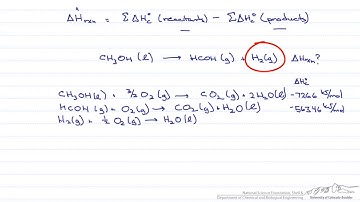 ΔH°rxn = ΣΔH°c (reactants) - ΣΔH°c (products)
CH3OH (l) → HCOH (g) + H2(g) ΔHrxn?
ΔH°c
CH3OH(l) + 3/2 O2 (g) → CO2 (g) + 2H2O(l) -726.6 kJ/mol
HCOH (g) + O2(g) → CO2(g) + H2O(l) -563.46 kJ/mol
H2(g) + 1/2 O2(g) → H2O(l)
Department of Chemical and Biological Engineering
University of Colorado Boulder